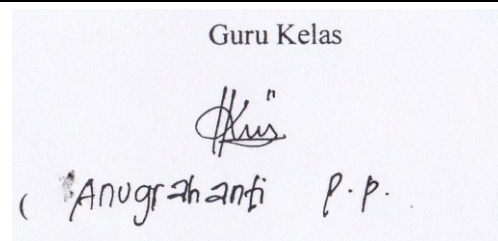 Guru Kelas
( Anugrahanti P.P.